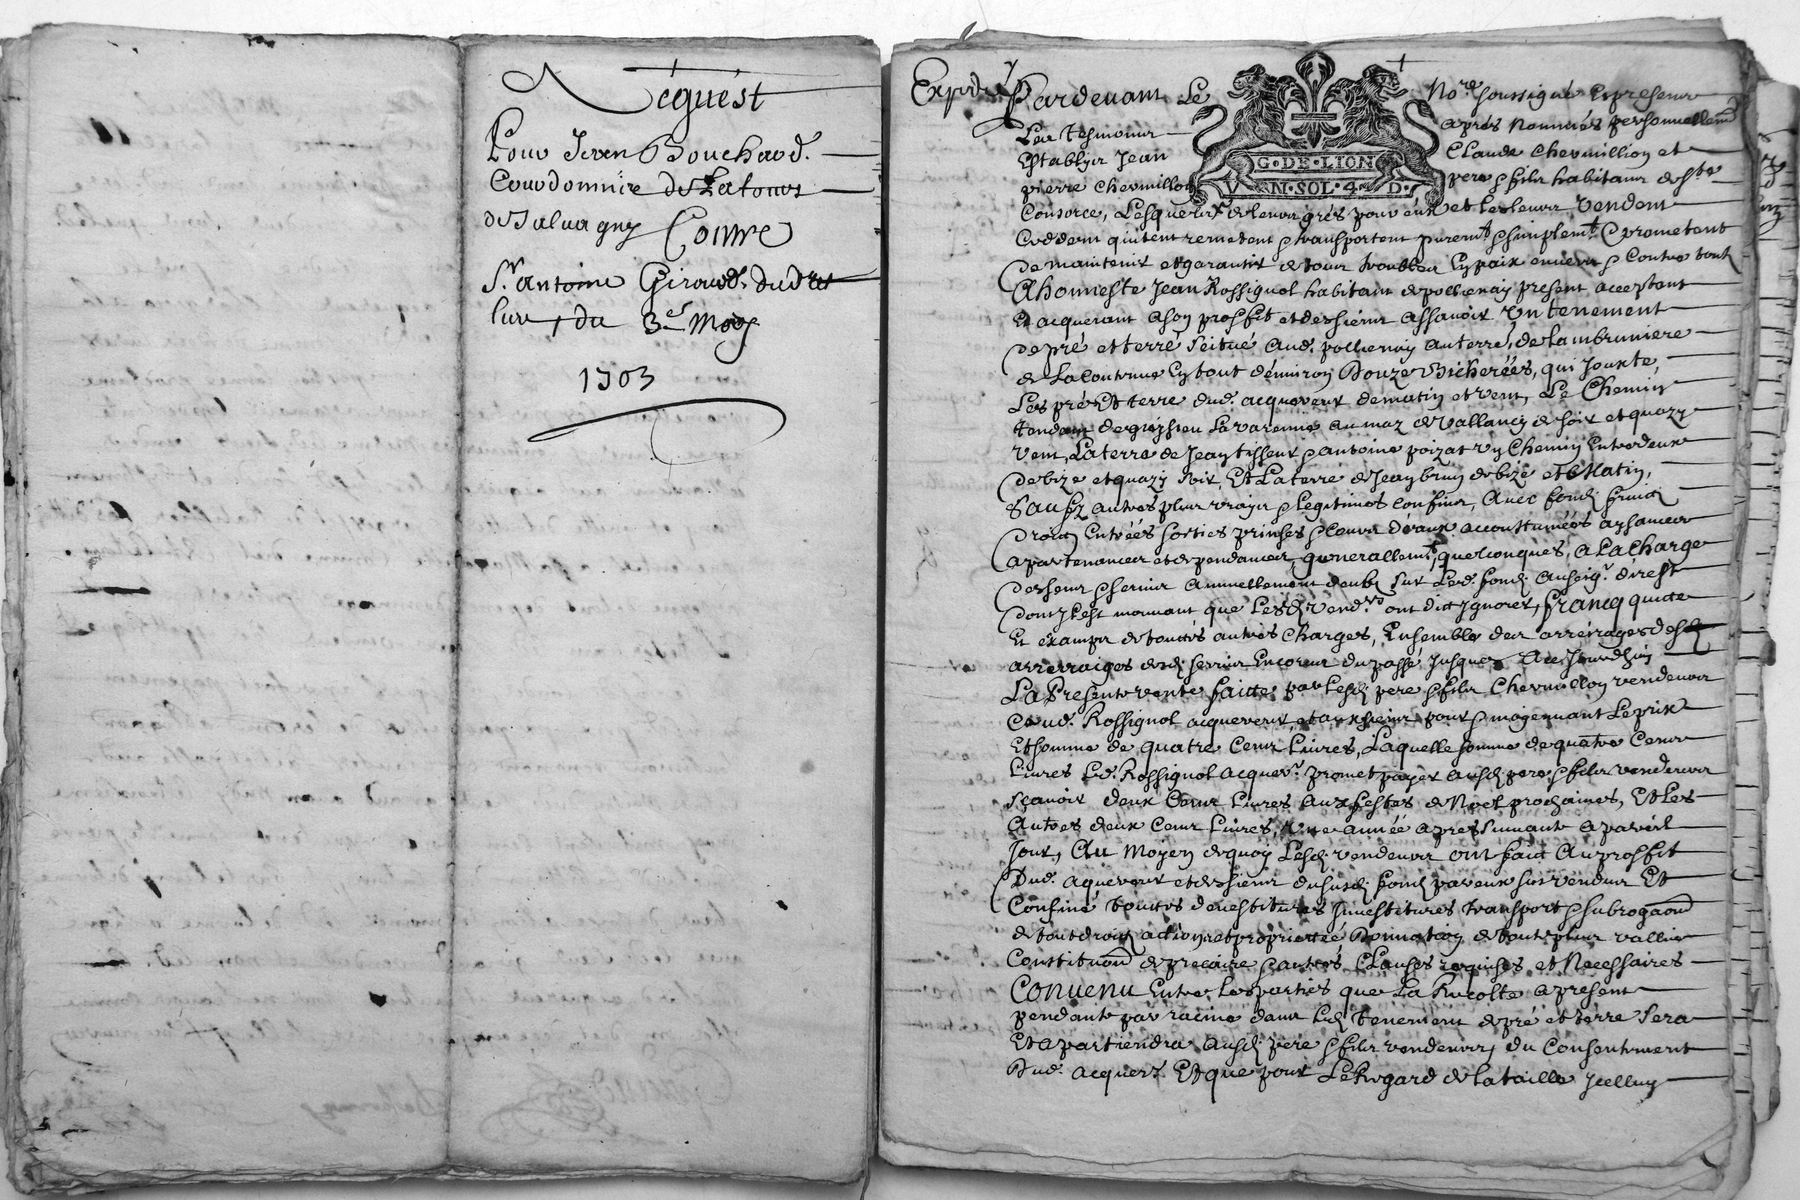 Réquest
Pour Jean Bouchard.
Courdonnier de Latour
de Salvagny Contre
Sr. antoine Giraud
livre, du 3e May
1703
Expedié
Pardevant Le No.re soussigné Et presents
Les tesmoins apres nommés personnellemt
Establys Jean Claude Chermillion et
pierre Chermillon pere & fils habitans de Ste
G·DE·LION
V M·SOL·4 D·
Consorce, Lesquels de leurs grés pour eux et les leurs Vendent
Ceddent quitent remetent & transportent puremt. & simplemt. & prometent
de maintenir et garantir de tour troubles En paix envers & contre touts
A honneste Jean Rossignol habitant de pollienay present acceptant
Et acquerant a son proffit et des siens Assavoir Un tenement
de pré et terre scitué aud. pollienay au terre, de la mbruniere
de La Contenue En tout d'environ Douze Bicherées, qui Jouxte,
Les pré Et terre dud. acquereur de matin et vent, Le Chemin
tendant de Laverenne au maz de Vallancy de soir et quazy
Vent, La terre de Jean tisseur & antoine poizat Un Chemin Entredeux
de bize et quazy soir, Et La terre de Jean brun de bize et Matin,
Saufz autres plus vrayes & Legitimes confins, Avec fonds fruicts
Droicts Entrées sorties prinses & cours d'eaux accoustumées aysances
apartenances et dependances, generallemt. quelconques, A La Charge
des sens & servis annuellement deubs sur Led. fonds Au seigr. direct
dont Il est mouvant que Lesd. vendrs ont dit Ignorer, francq quitte
Et exampt de toutes autres Charges, Ensemble des arréirages desd.
arrerraiges desd. servis Encorus du passé Jusques
La Presente vente faitte par Lesd. pere & fils Chermillon vendeurs
Aud. Rossignol acquereur, et aux siens pour & moyennant Le prix
Et somme de quatre Cens Livres, Laquelle somme de quatre Cens
Livres Led. Rossignol acquerr. promet payer Ausd. pere & fils vendeurs
Sçavoir deux Cens Livres Aux festes de Noel prochaines, Et Les
Autres deux Cens Livres, Une année apres suivante a pareil
Jour, Au Moyen de quoy Lesd. vendeurs ont fait Au proffit
Dud. aquereur et des siens du susd. fonds par eux sus vendus Et
Confiné toutes devestitures Investitures transport & subrogaõn
de tout droits actions et proprietté Donnation de toute plus vallue
Constituaõn de precaire & autres Clauses requises et Necessaires
Convenu Entre Les parties que La Recolte a present
pendante par racine dans Led. tenement de pré et terre Sera
Et apartiendra Ausd. pere & fils vendeurs, du Consentement
Dud. acquerr. Et que pour Le Regard de la taille Icelluy